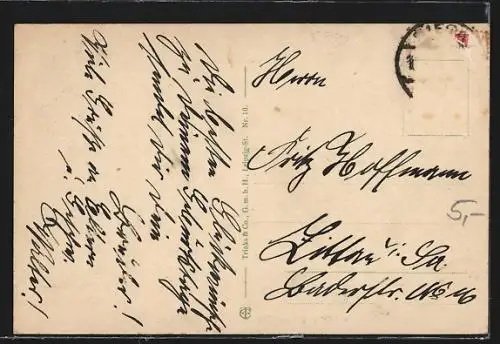 Die besten Glückwünsche
zu Deinem Geburtstage
sendet Dir Dein
Bruder!
Viele Grüße an Eltern
u.
Walter!
Trinks & Co., G. m. b. H., Leipzig-St. Nr. 10.
Herrn
Fritz Hoffmann
Zittau i. Sa.
Baderstr. No
5,-